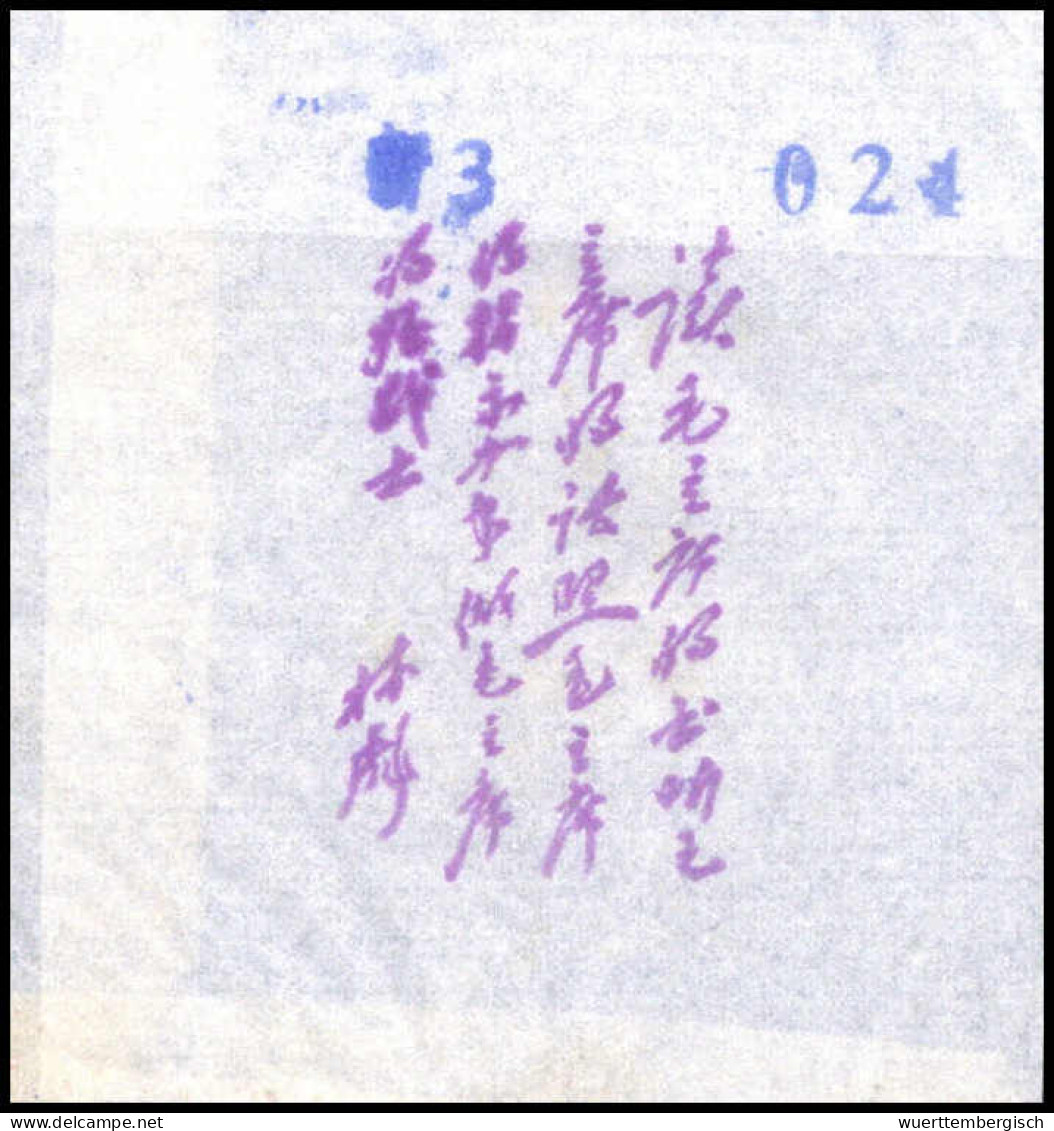 3
024
读毛主席的书听毛
主席的话照毛主席
的指示办事做毛主席
的好战士
林彪
wuerttembergisch